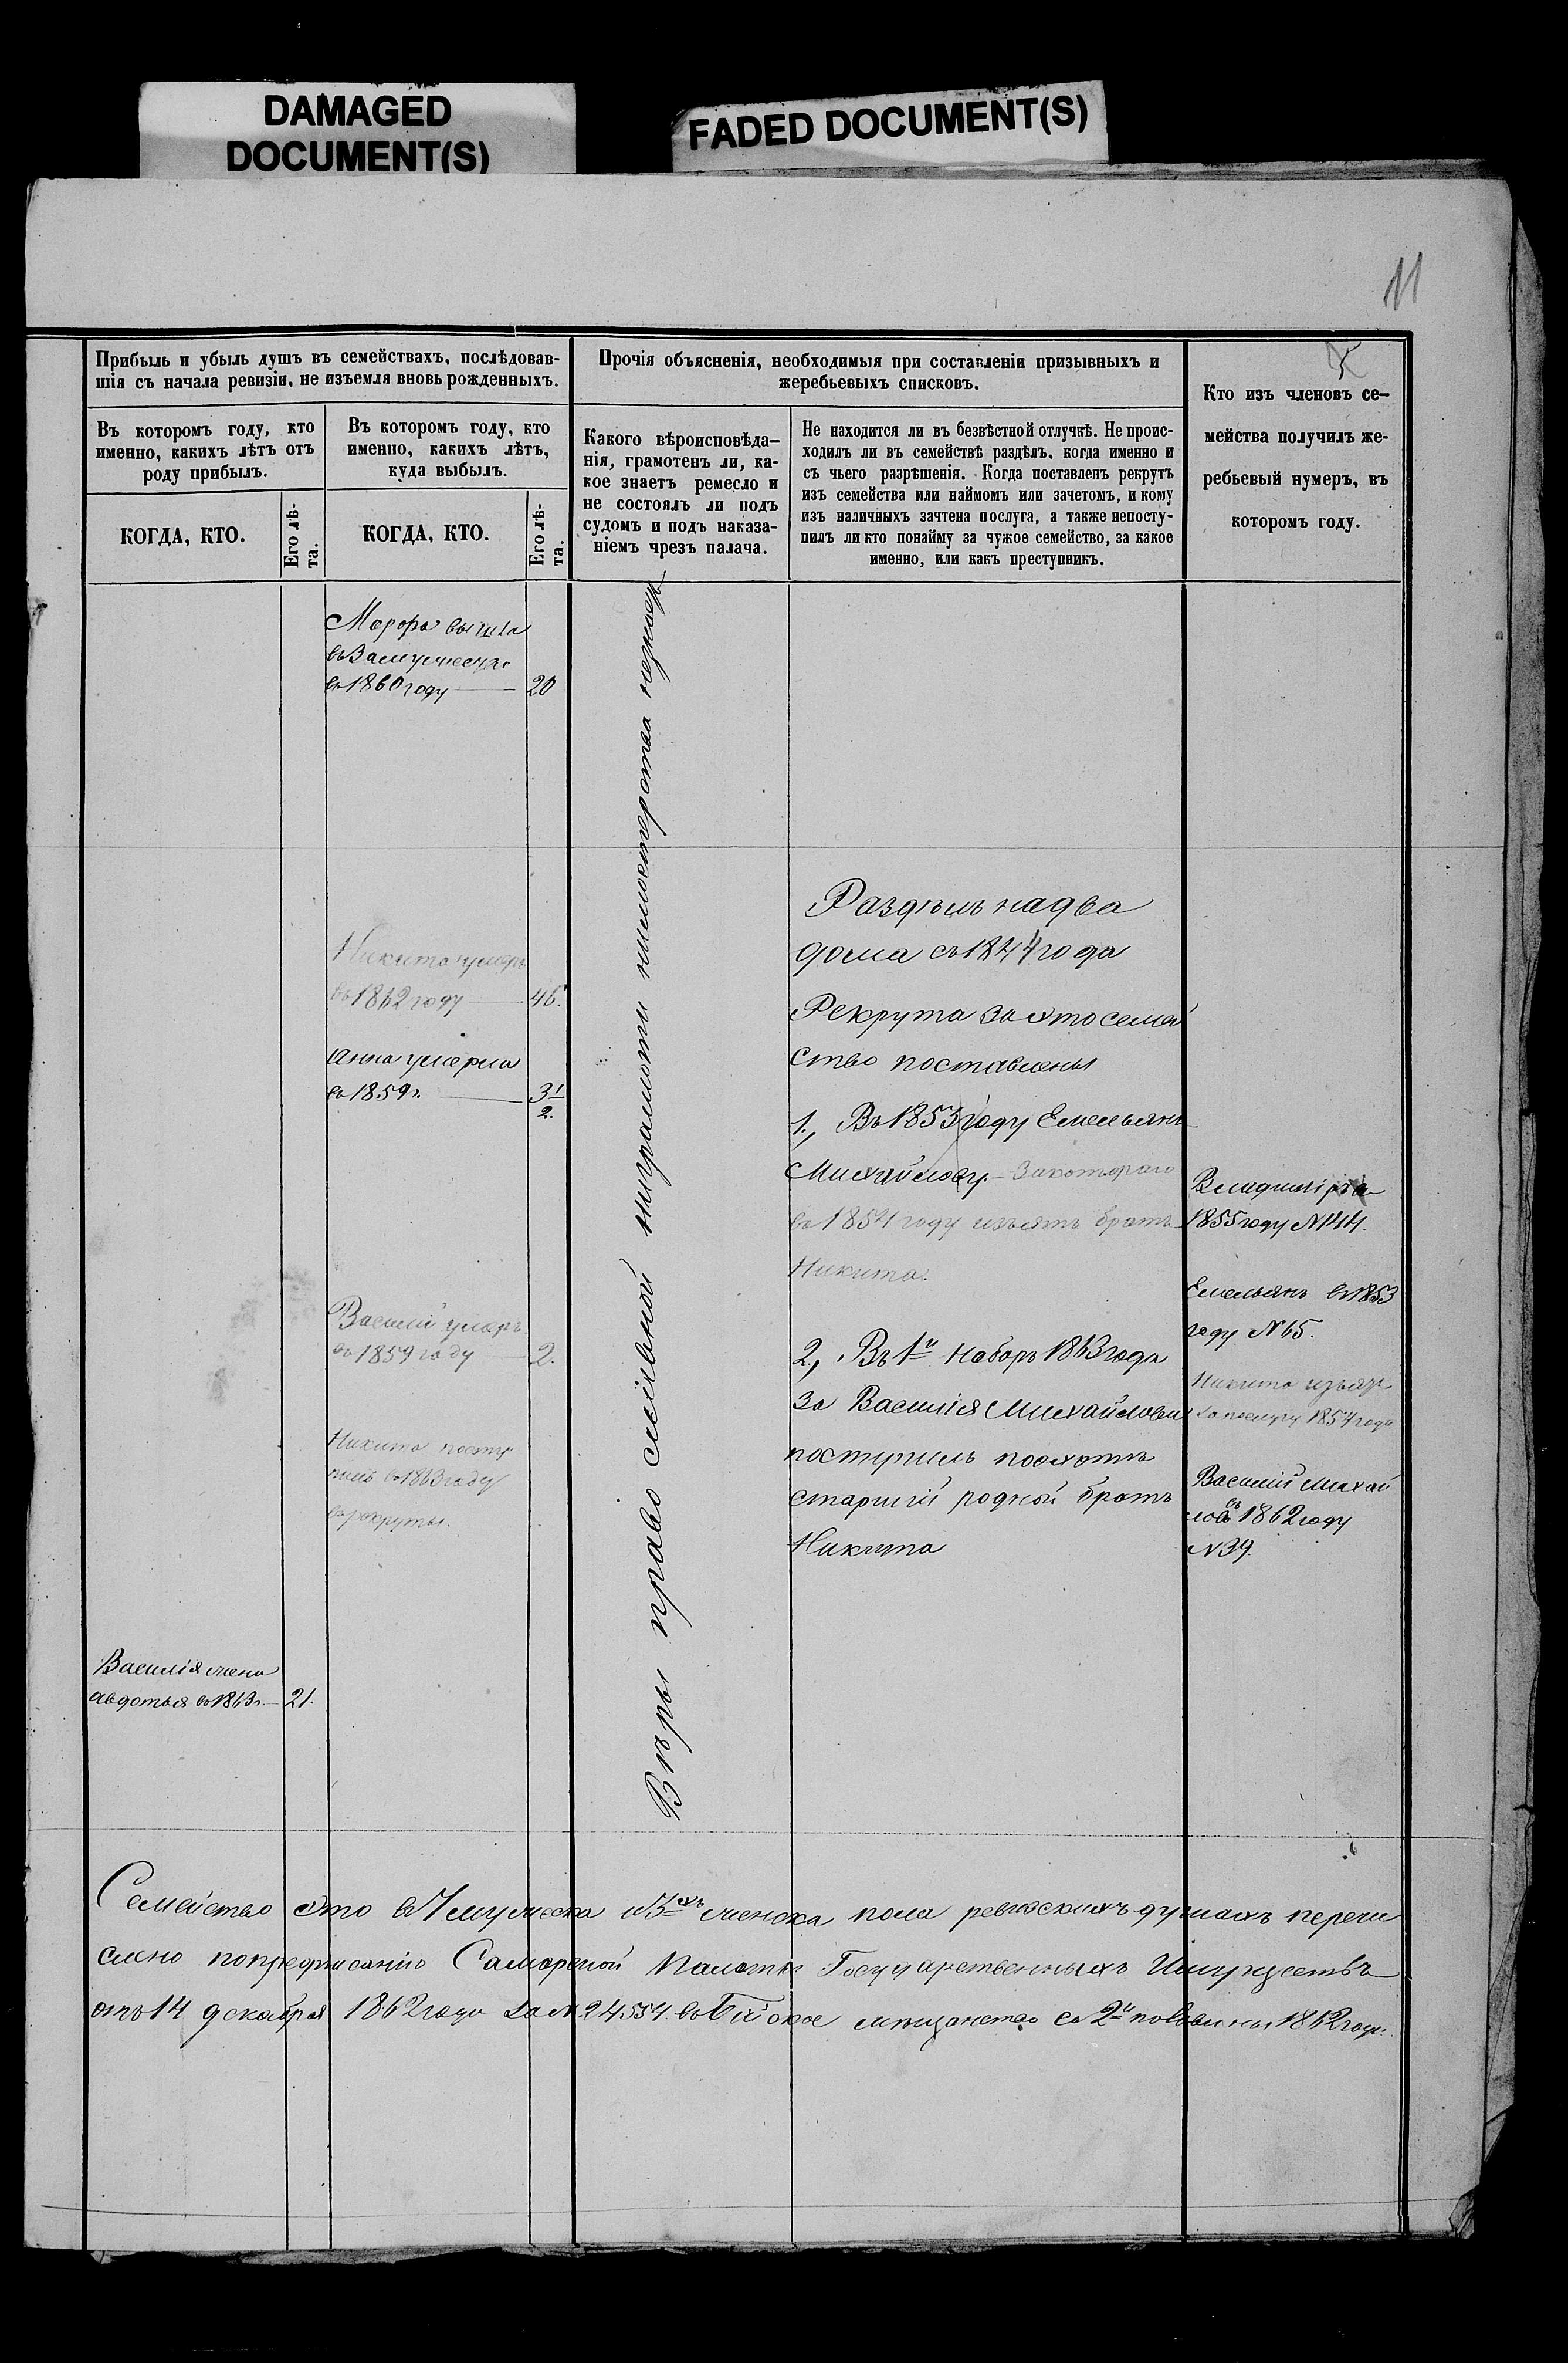 DAMAGED
DOCUMENT(S)
FADED DOCUMENT(S)
11
Прибыль и убыль душъ въ семействахъ, послѣдовав-
шія съ начала ревизіи, не изъемля вновь рожденныхъ.
Въ которомъ году, кто
именно, какихъ лѣтъ отъ
роду прибылъ.
КОГДА, КТО.
Его лѣ-
та.
Въ которомъ году, кто
именно, какихъ лѣтъ,
куда выбылъ.
КОГДА, КТО.
Его лѣ-
та.
Прочія объясненія, необходимыя при составленіи призывныхъ и
жеребьевыхъ списковъ.
Какого вѣроисповѣда-
нія, грамотенъ ли, ка-
кое знаетъ ремесло и
не состоялъ ли подъ
судомъ и подъ наказа-
ніемъ чрезъ палача.
Не находится ли въ безвѣстной отлучкѣ. Не проис-
ходилъ ли въ семействѣ раздѣлъ, когда именно и
съ чьего разрѣшенія. Когда поставленъ рекрутъ
изъ семейства или наймомъ или зачетомъ, и кому
изъ наличныхъ зачтена послуга, а также непосту-
пилъ ли кто понайму за чужое семейство, за какое
именно, или какъ преступникъ.
Кто изъ членовъ се-
мейства получилъ же-
ребьевый нумеръ, въ
которомъ году.
вышла
въ Замужества
въ 1860 году 20
Никита умеръ
въ 1862 году 46.
Анна умерла
въ 1859 г. 3 1/2.
Василій умеръ
въ 1859 году 2.
Никита посту
пилъ въ 1863 году
въ рекруты.
Василія жена
Авдотья въ 1863 г. 21.
Вѣры право славной
Раздѣлъ на два
дома съ 1844 года
Рекрута за это семей
ство поставлены
1., Въ 1853 году Емельянъ
Михайловъ - За котораго
въ 1854 году изъятъ братъ
Никита.
2., Въ 1й наборъ 1863 года
За Василія Михайлова
поступилъ по охотѣ
старшій родной братъ
Никита
Владиміръ в
1855 году N 144.
Емельянъ въ 1853
году N 65.
Никита изъятъ
за послугу 1854 года
Василій Михай
ловъ въ 1862 году
N 39.
Семейство это въ 7 мужеска и 3хъ женска пола ревизскихъ душахъ перечи
слено по предписанію Самарской Палаты Государственныхъ Имуществъ
отъ 14 декабря 1862 года за N 24554. въ мѣщанство съ 2й половины 1862 года.